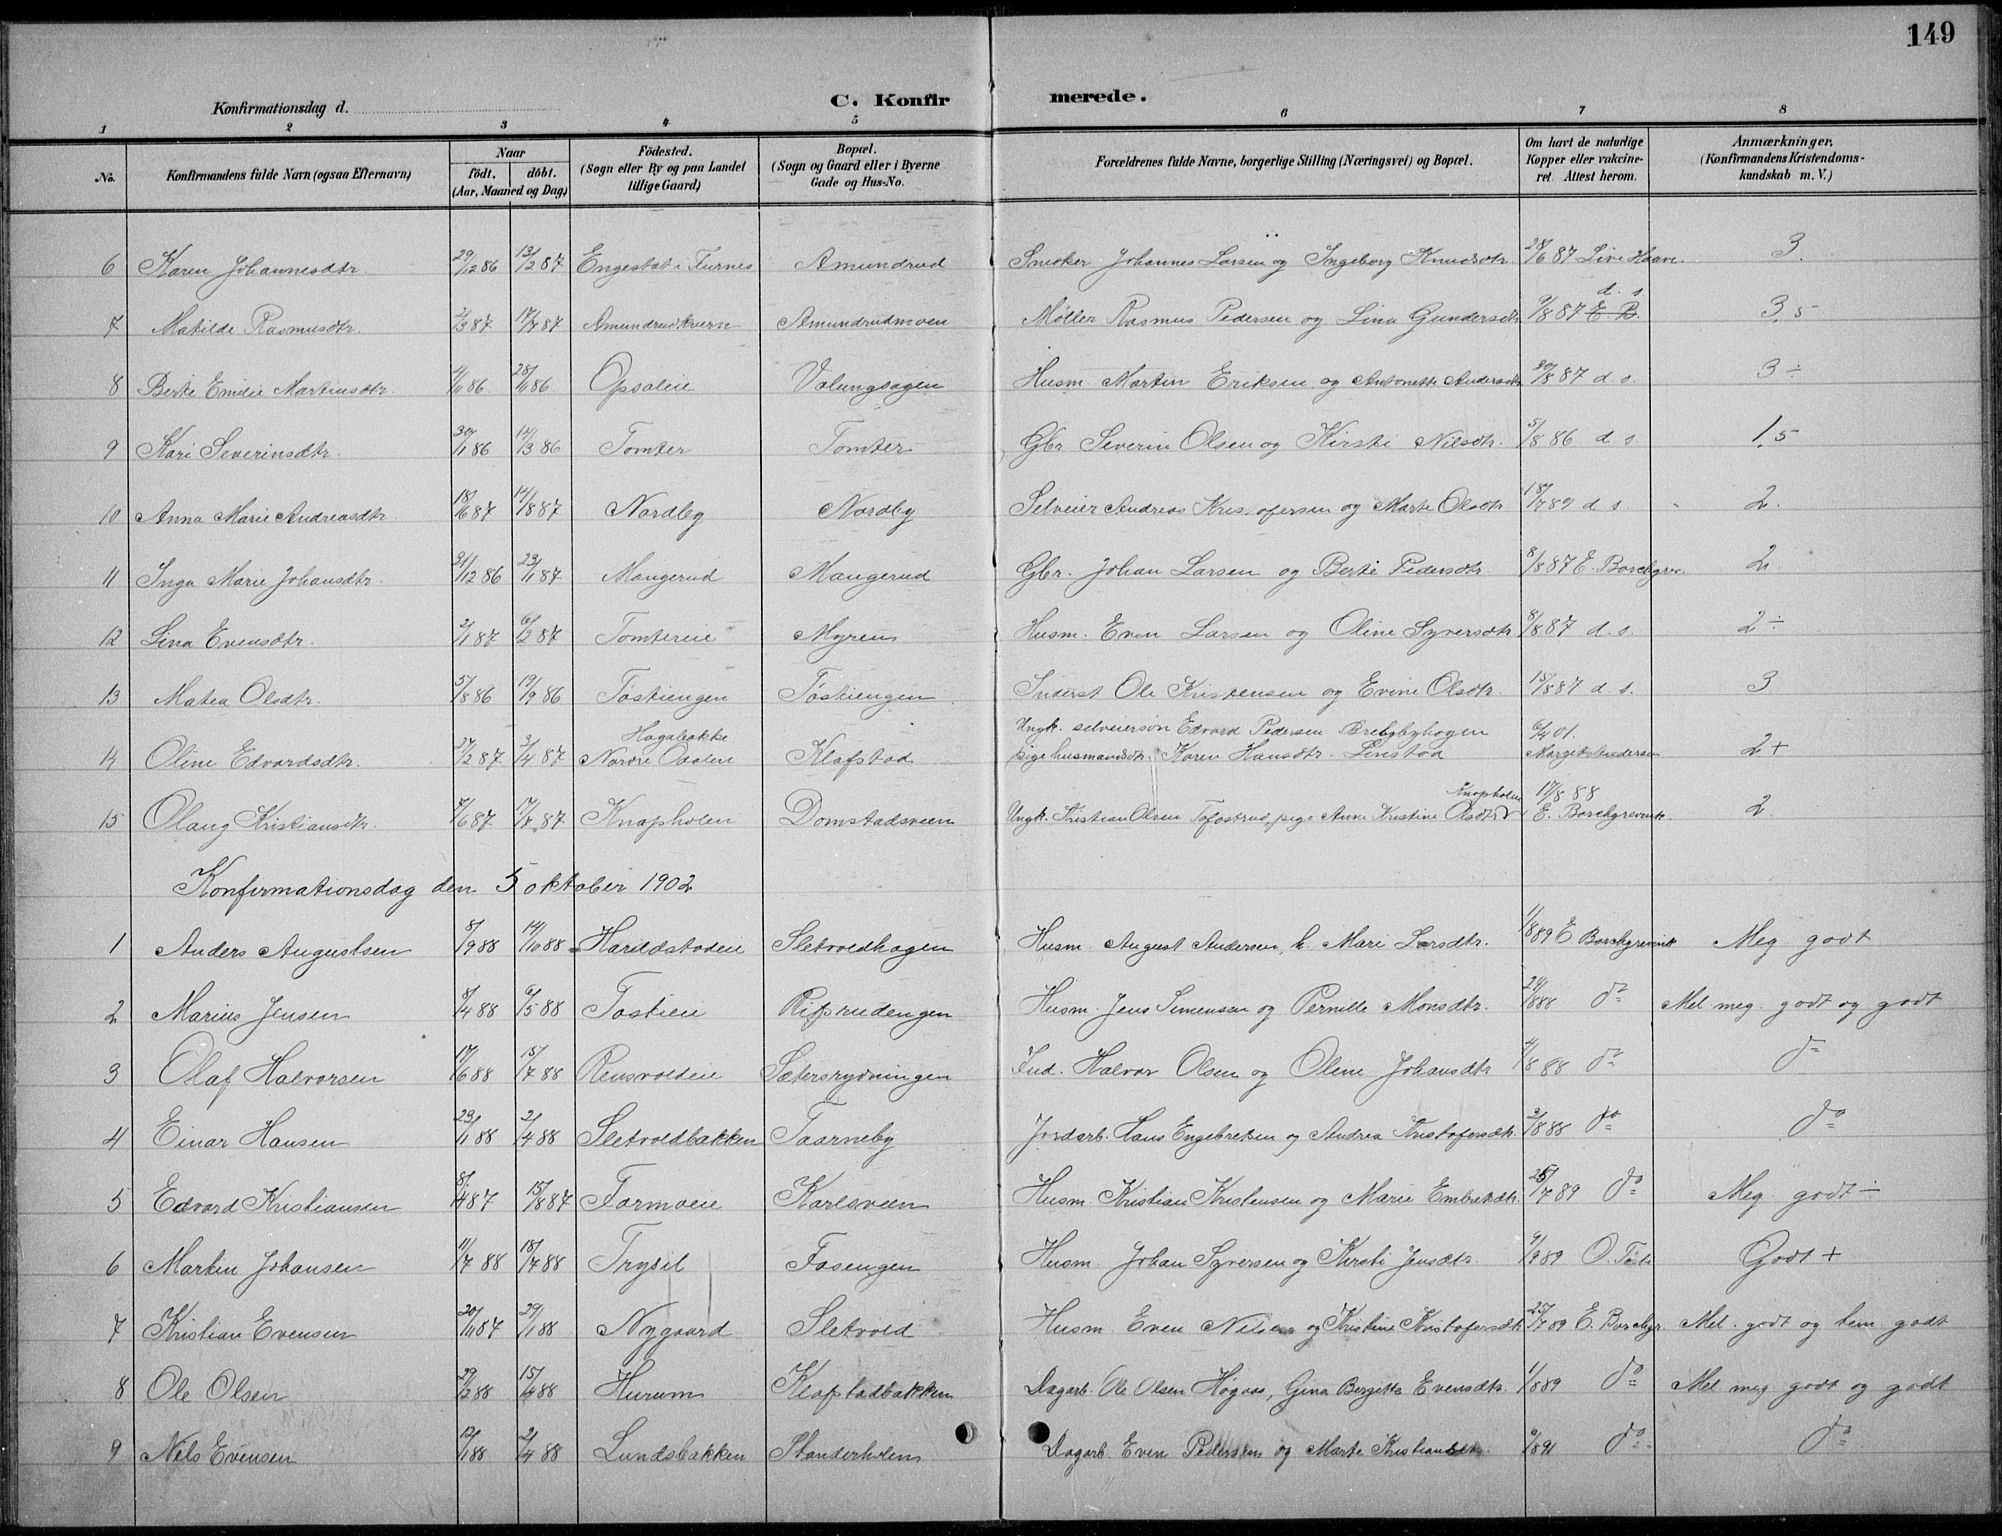 149
Konfirmationsdag d.
C. Konfirmerede.
1 2 3 4 5 6 7 8
No.
Konfirmandens fulde Navn (ogsaa Efternavn)
Naar
födt. döbt.
(Aar, Maaned og Dag)
Födested.
(Sogn eller By og paa Landet
tillige Gaard)
Bopæl.
(Sogn og Gaard eller i Byerne
Gade og Hus-No.
Forældrenes fulde Navne, borgerlige Stilling (Næringsvei) og Bopæl.
Om havt de naturlige
Kopper eller vakcine-
ret. Attest herom.
Anmærkninger.
(Konfirmandens Kristendoms-
kundskab m. V.)
6 Karen Johannesdtr. 29/12 86 13/2 87 Engestat i Furnes Amundrud Snedker Johannes Larsen og Ingeborg Knudsdtr. 28/6 87 Live Haave. 3.
7 Matilde Rasmusdtr. 2/3 87 17/4 87 Amundrudkvern Amundrudmoen Møller Rasmus Pedersen og Lina Gundersdtr. 9/8 87 E B. d. s. 3,5
8 Berte Emilie Martinsdtr. 4/11 86 28/11 86 Opsaleie Volungsagen Husm. Martin Eriksen og Antonette Andersdtr. 20/8 87 d. s. 3 ÷
9 Kari Severinsdtr. 30/1 86 14/3 86 Tomter Tomter Gbr. Severin Olsen og Kirsti Nilsdtr. 5/8 86 d. s. 1,5
10 Anna Marie Andreasdtr. 18/6 87 14/8 87 Nordby Nordby Selveier Andreas Kristofersen og Marte Olsdtr. 18/7 89 d. s. 2.
11 Inga Marie Johansdtr. 31/12 86 23/1 87 Mangerud Mangerud Gbr. Johan Larsen og Berte Pedersdtr. 8/8 87 E. Borchgrev. 2.
12 Lina Evensdtr. 2/1 87 6/2 87 Tomtereie Myren Husm. Even Larsen og Oline Syversdtr. 8/8 87 d. s. 2 ÷
13 Matea Olsdtr. 5/8 86 19/9 86 Töstiengen Töstiengen Inderst Ole Kristensen og Evine Olsdtr. 15/8 87 d. s. 3
14 Oline Edvardsdtr. 27/2 87 3/4 87 Hagabakke Klafstad Ungk. selveiersøn Edvard Pedersen Brebybyhagen 6/4 01.
Nordre Odalen pige husmandsdtr. Karen Hansdtr. Linstad Margit Andersen 2 +
15 Olaug Kristiansdtr. 7/6 87 17/7 87 Knapholen Domstadsveen Ungk. Kristian Olsen Tofastrud, pige Anne Kristine Olsdtr Knapholen 17/8 88 E. Borchgrevink. 2
Konfirmationsdag den 5 oktober 1902
1 Anders Augustsen 8/9 88 14/10 88 Harildstadeie Sletvoldhagen Husm. August Andersen, h. Mari Larsdtr. 1/8 89 E Borchgrevink Meg godt
2 Marius Jensen 8/4 88 6/5 88 Tostieie Rifsrudengen Husm. Jens Simensen og Pernille Monsdtr. 24/8 88 do Mel meg. godt og godt
3 Olaf Halvorsen 17/6 88 15/7 88 Rensvoldeie Sætersrydningen Ind. Halvor Olsen og Oline Johansdtr 4/8 88 do do
4 Einar Hansen 23/1 88 2/4 88 Sletvoldbakken Taarneby Jordarb. Hans Engebretsen og Andrea Kristofersdtr. 3/8 88 do do
5 Edvard Kristiansen 8/4 87 15/8 87 Formoeie Karlsveen Husm. Kristian Kristensen og Marie Embretsdtr. 25/7 89 do Meg. godt ÷
6 Martin Johansen 11/7 88 18/7 88 Trysil Fosengen Husm. Johan Syversen og Kirsti Jensdtr. 9/9 89 O. Töste Godt +
7 Kristian Evensen 20/11 87 29/1 88 Nygaard Sletvold Husm. Even Nilsen og Kristine Kristofersdtr 25/7 89 E. Borchgr. Mel. godt og tem. godt
8 Ole Olsen 29/2 88 15/4 88 Hurum Klafstadbakken Dagarb. Ole Olsen Högaas, Gina Bergitte Evensdtr. 1/8 89 do Mel meg. godt og godt
9 Nils Evensen 12/1 88 2/4 88 Lundsbakken Standerholen Dagarb. Even Pedersen og Marte Kristiansdtr. 9/8 91 do do